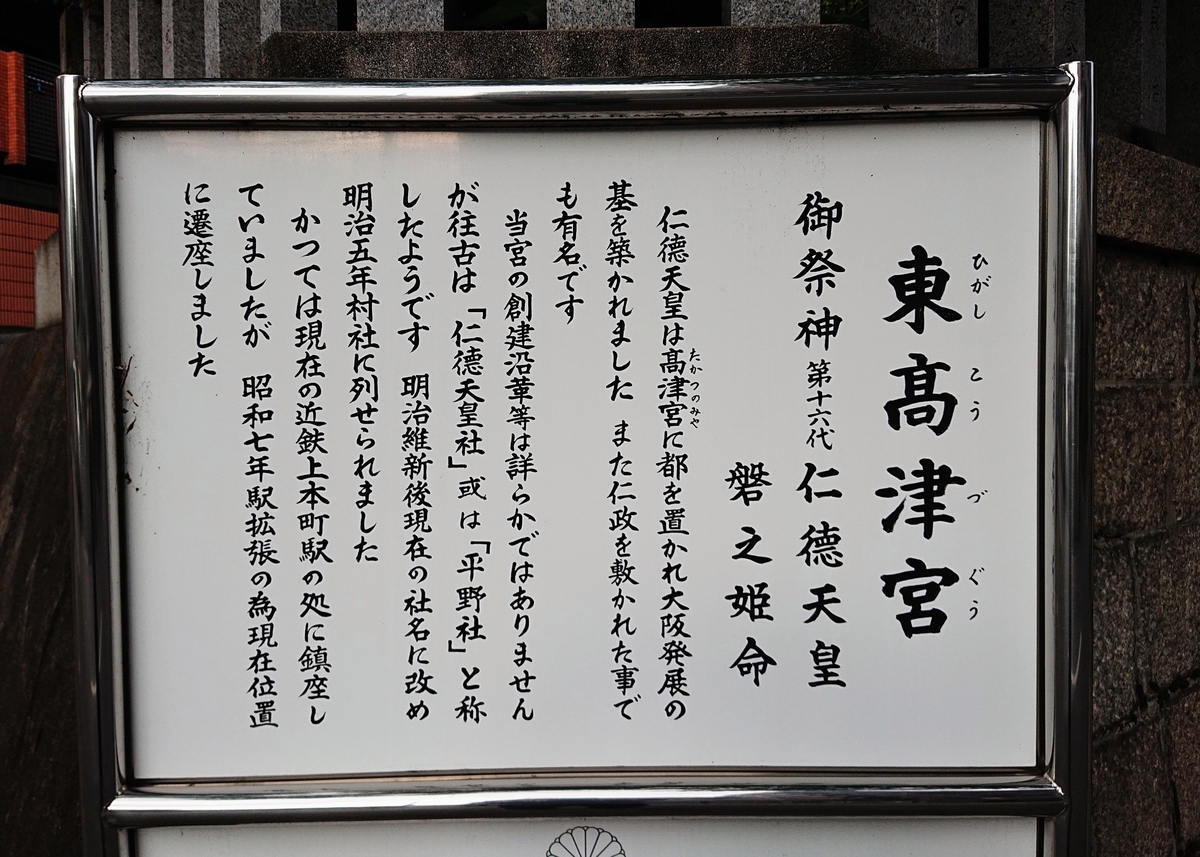 東髙津宮
ひがし こう づ ぐう
御祭神 第十六代 仁徳天皇
磐之姫命
仁徳天皇は髙津宮に都を置かれ大阪発展の
たかつのみや
基を築かれました また仁政を敷かれた事で
も有名です
当宮の創建沿革等は詳らかではありません
が往古は「仁徳天皇社」或は「平野社」と称
したようです 明治維新後現在の社名に改め
明治五年村社に列せられました
かつては現在の近鉄上本町駅の処に鎮座し
ていましたが 昭和七年駅拡張の為現在位置
に遷座しました